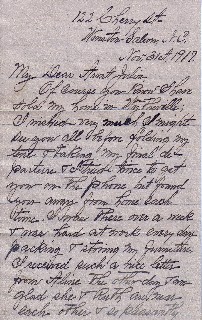 122 Cherry St.
Winston-Salem, N.C.
Nov. 21st 1919.
My Dear Aunt Julia
Of course you know I have
sold my home in
I wished very much I might
see you all before folding my
tent & taking my final de-
parture & I tried twice to get
you on the phone but found
you away from home each
time. I was there over a week
& was hard at work every day
packing & storing my furniture
I received such a nice letter
from the other day I am
glad she & Ruth are near
each other & so pleasantly